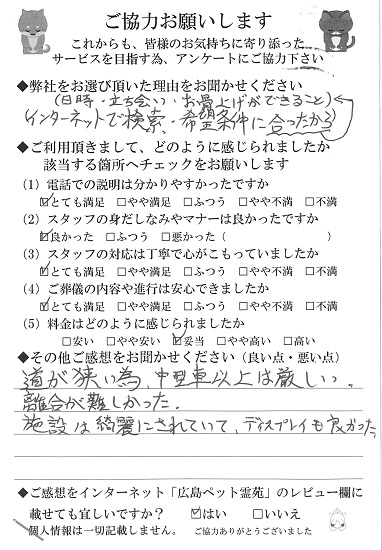 ご協力お願いします
これからも、皆様のお気持ちに寄り添った
サービスを目指す為、アンケートにご協力下さい
◆弊社をお選び頂いた理由をお聞かせください
(日時・立ち会い・お骨上げができること)
インターネットで検索・希望条件に合ったから
◆ご利用頂きまして、どのように感じられましたか
該当する箇所へチェックをお願いします
(1) 電話での説明は分かりやすかったですか
☑とても満足 □やや満足 □ふつう □やや不満 □不満
(2) スタッフの身だしなみやマナーは良かったですか
☑良かった □ふつう □悪かった( )
(3) スタッフの対応は丁寧で心がこもっていましたか
☑とても満足 □やや満足 □ふつう □やや不満 □不満
(4) ご葬儀の内容や進行は安心できましたか
☑とても満足 □やや満足 □ふつう □やや不満 □不満
(5) 料金はどのように感じられましたか
□安い □やや安い ☑妥当 □やや高い □高い
◆その他ご感想をお聞かせください(良い点・悪い点)
道が狭い為、中型車以上は厳しい。
離合が難しかった。
施設は綺麗にされていて、ディスプレイも良かった。
◆ご感想をインターネット「広島ペット霊苑」のレビュー欄に
載せても宜しいですか? ☑はい □いいえ
個人情報は一切記載しません。 ご協力ありがとうございました